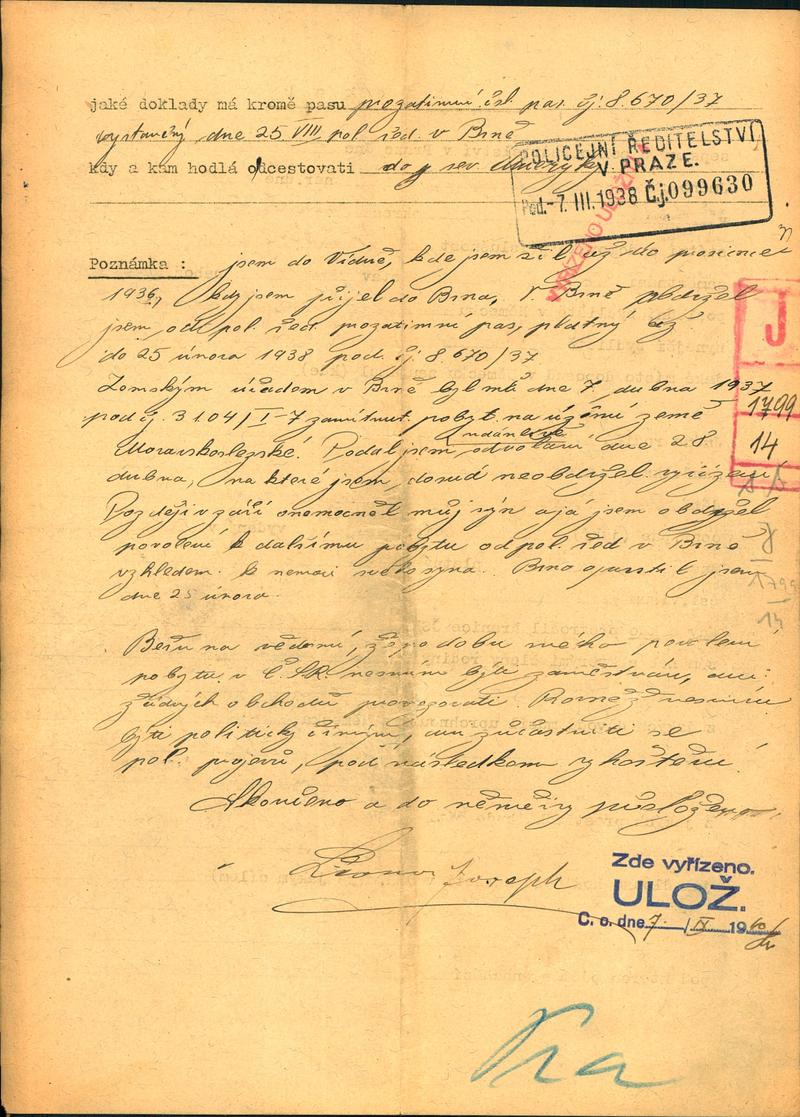 jaké doklady má kromě pasu prozatimní čsl. pas. čj: 8.670/37
vystavěný dne 25 VIII pol. řed. v Brně
kdy a kam hodlá odcestovati do sev. Ameryky
POLICEJNÍ ŘEDITELSTVÍ
V PRAZE.
Pod. -7. III. 1938 Čj. 099630
Poznámka : jsem do Vídně, kde jsem žil až do prosince
1936, kdy jsem přijel do Brna, V Brně obdržel
jsem od pol. řed. prozatimní pas, platný až
do 25 února 1938 pod. čj: 8670/37
Zemským úřadem v Brně byl mě dne 7, dubna 1937
pod čj. 3104/I-7 zamítnut pobyt na území země
údánlivě
Moravskoslezské. Podal jsem odvolání dne 28
dubna, na které jsem dosud neobdržel vyřízení
Později v září onemocněl můj syn a já jsem obdržel
povolení k dalšímu pobytu od pol. řed v Brně
vzhledem k nemoci svého syna. Brno opustil jsem
dne 25 února.
J
1799
14
J
1799
14
Beru na vědomí, že po dobu mého povolení
pobytu v ČSR. nesmím býti zaměstnán, ani
žádných obchodů provozovati Rovněž nesmím
býti politicky činným, ani zúčastniti se
pol. projevů, pod následkem vyhoštění
Skončeno a do němčiny přeloženo
Joseph
Zde vyřízeno.
ULOŽ.
C. o. dne 7. / IX 1940